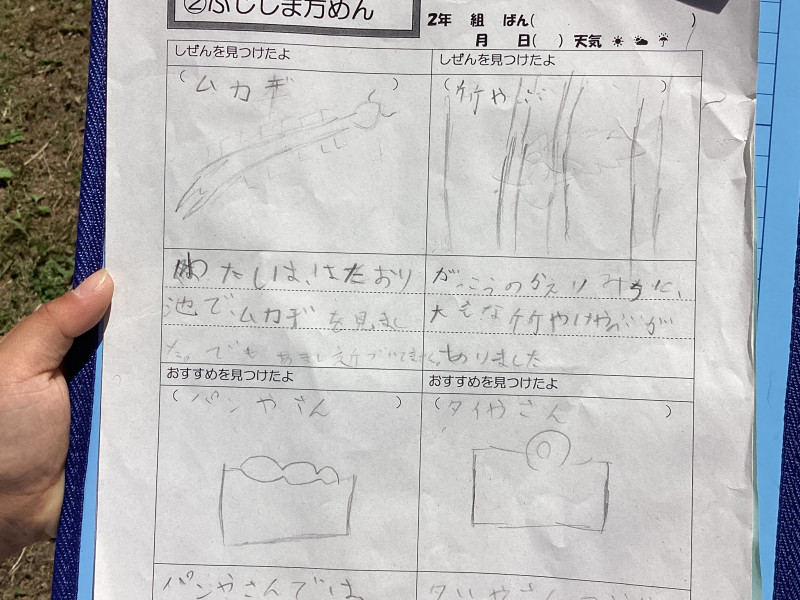 ②ふじしま方めん
2年 組 ばん( )
月 日( ) 天気
しぜんを見つけたよ
(ムカデ)
わたしは、はたおり
池で、ムカデを見まし
た。でも
しぜんを見つけたよ
(竹やぶ)
がっこうのかえりみちに、
大きな竹やぶが
ありました
おすすめを見つけたよ
(パンやさん)
パンやさんでは
おすすめを見つけたよ
(タイやさん)
タイやさん